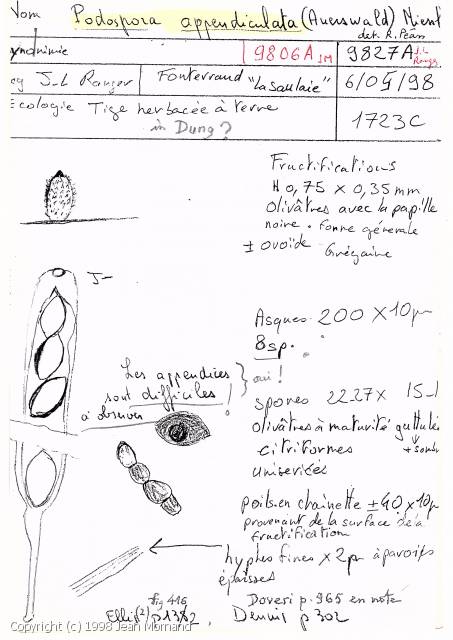 Nom Podospora appendiculata (Auerswald) Niessl
det. R. Péan
Synonimie 9806A JM 9827A J.L Ranger
Leg J-L Ranger Fontevraud "La Saulaie" 6/05/98
Ecologie Tige herbacée à terre 1723C
in Dung?
Fructifications
H 0,75 x 0,35 mm
olivâtres avec la papille
noire. forme générale
± ovoïde Grégaire
J-
Asques 200 x 10µ
8sp.
Les appendices
sont difficiles
à observer !
oui !
spores 22.27 x 15-1
olivâtres à maturité guttulés
citriformes + sombr
unisériées
poils en chaînette ± 40 x 10µ
provenant de la surface de la
fructification
hyphes fines x 2µ à parois
épaisses
fig 416 Doveri p. 965 en note
Ellis (2) p 1382, Dennis p 302
Copyright (c) 1998 Jean Mornand